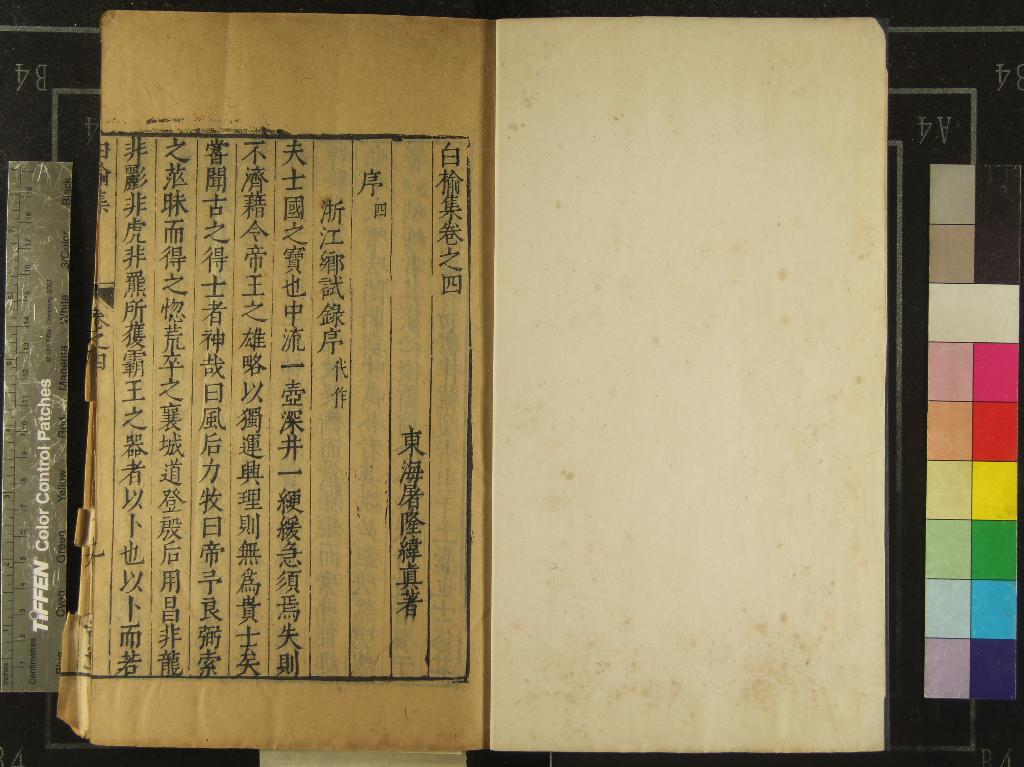 白榆集卷之四
東海屠隆緯真著
序四
浙江鄉試錄序 代作
夫士國之寶也中流一壺深井一綆緩急須焉失則
不濟藉令帝王之雄略以獨運興理則無為貴士矣
嘗聞古之得士者神哉曰風后力牧曰帝予良弼索
之茫昧而得之惚荒卒之襄城道登殷后用昌非龍
非彲非虎非羆所獲霸王之器者以卜也以卜而若
白榆集
卷之四
一
B4
A4
B4
TIFFEN Color Control Patches
Centimetres
Inches
Blue
Cyan
Green
Yellow
Red
Magenta
White
3/Color
Black